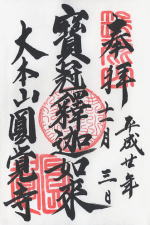 奉拝
平成廿年
二月三日
寳冠釋迦如来
大本山圓覚寺